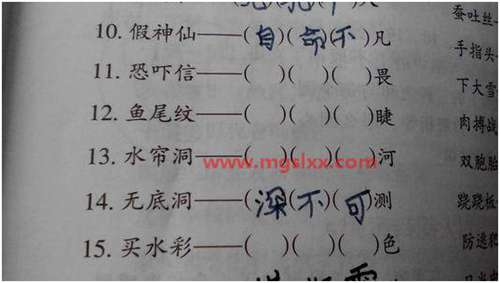 10. 假神仙——(自)(命)(不)凡 蚕吐丝
11. 恐吓信——( )( )( )畏 手指头
12. 鱼尾纹——( )( )( )睫 下大雪
www.mgslxx.com 肉搏战
13. 水帘洞——( )( )( )河 双胞胎
14. 无底洞——(深)(不)(可)测 跷跷板
15. 买水彩——( )( )( )色 防逃犯